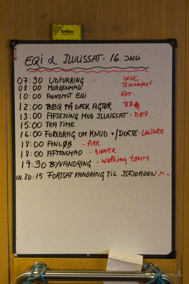 EQI & ILULISSAT. 16. JULI
07:30 UDPURRING. WUC
08:00 MORGENMAD Breakfast
10:00 ANKOMST EQI ARR.
12:00 BBQ PÅ DÆK AGTER BBQ
13:00 AFSEJLING MOD ILULISSAT - DEP.
15:00 TEA TIME
16:00 FOREDRAG OM KNUD /DORTE - LECTURE
18:00 ANLØB - ARR
18:00 AFTENSMAD - DINNER
19:30 BYVANDRING - Walking tours
ca. 20:15 FORTSAT VANDRING TIL ISFJORDEN